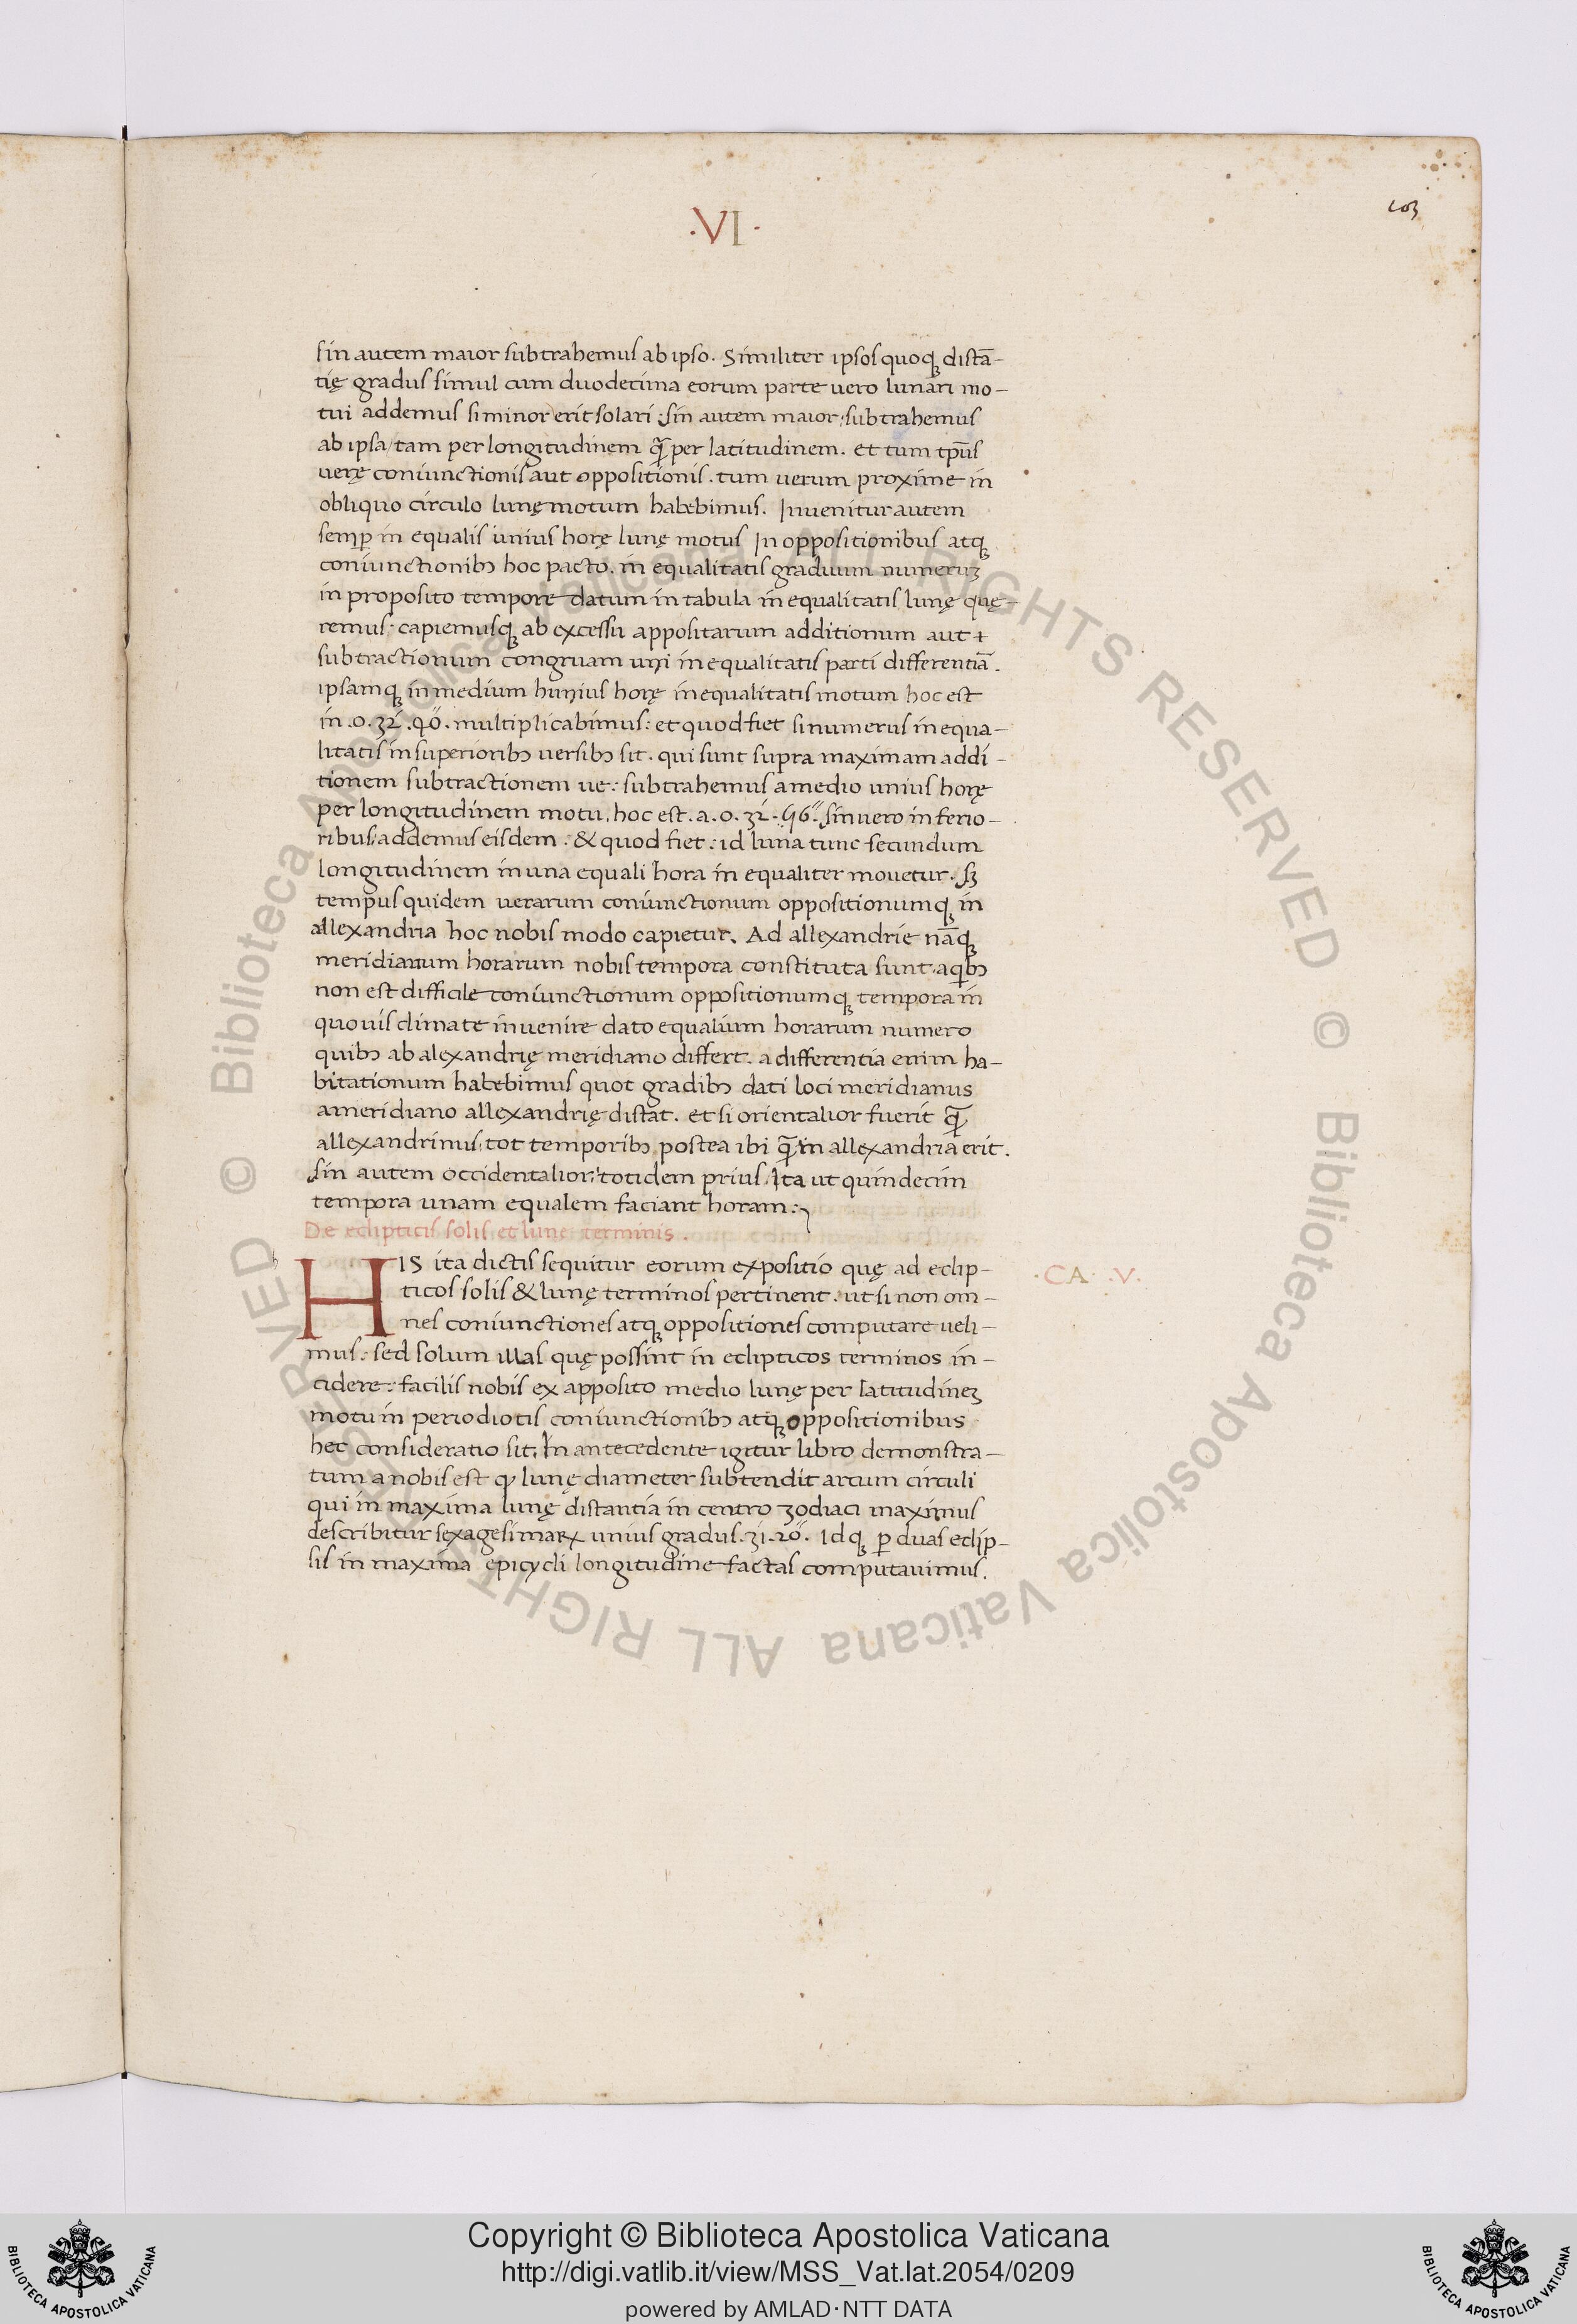 ·VI·
103
sin autem maior subtrahemus ab ipso. Similiter ipsos quoq; distā-
tię gradus simul cum duodecima eorum parte uero lunari mo-
tui addemus si minor erit solari: sin autem maior: subtrahemus
ab ipsa/ tam per longitudinem q̄ꝫ per latitudinem. et tum tp̄us
uerę coniunctionis aut oppositionis. tum uerum proxime in
obliquo circulo lunę motum habebimus. Inuenitur autem
semꝑ in equalis unius horę lunę motus In oppositionibus atq;
coniunctionibꝫ hoc pacto. in equalitatis graduum numeruꝫ
in proposito tempore datum in tabula in equalitatis lunę quę-
remus: capiemusq; ab excessu appositarum additionum aut +
subtractionum congruam uni in equalitatis parti differentiā.
ipsamq; in medium huius horę in equalitatis motum hoc est
in .0. 32́. 40̋. multiplicabimus: et quod fiet si numerus in equa-
litatis in superioribꝫ uersibꝫ sit. qui sunt supra maximam addi-
tionem subtractionem ue: subtrahemus a medio unius horę
per longitudinem motu, hoc est. a. 0. 32́. 56̋. sin uero in ferio-
ribus, addemus eisdem. & quod fiet: id luna tunc secundum
longitudinem in una equali hora in equaliter mouetur. sꝫ
tempus quidem uerarum coniunctionum oppositionumq; in
allexandria hoc nobis modo capietur. Ad allexandrie nāq;
meridianum horarum nobis tempora constituta sunt. aq̇bꝫ
non est difficile coniunctionum oppositionumq; tempora in
quouis climate inuenire dato equalium horarum numero
quibꝫ ab alexandrię meridiano differt. a differentia enim ha-
bitationum habebimus quot gradibꝫ dati loci meridianus
a meridiano allexandrię distat. et si orientalior fuerit q̄ꝫ
allexandrinus, tot temporibꝫ postea ibi q̄ꝫ in allexandria erit.
sin autem occidentalior, totidem prius. Ita ut quindecim
tempora unam equalem faciant horam:
De eclipticis solis et lune terminis.
HIS ita dictis sequitur eorum expositio quę ad eclip-
·CA· ·V·
ticos solis & lunę terminos pertinent. ut si non om-
nes coniunctiones atq; oppositiones computare ueli-
mus: sed solum illas quę possint in eclipticos terminos in-
cidere: facilis nobis ex apposito medio lunę per latitudineꝫ
motu in periodiotis coniunctionibꝫ atq; oppositionibus
hec consideratio sit. In antecedente igitur libro demonstra-
tum a nobis est ꝙ lunę diameter subtendit arcum circuli
qui in maxima lunę distantia in centro zodiaci maximus
describitur sexagesimaꝝ unius gradus. 31. 20̋. Idq; ꝑ duas eclip-
sis in maxima epicycli longitudine factas computauimus.
© Biblioteca Apostolica Vaticana ALL RIGHTS RESERVED © Biblioteca Apostolica Vaticana ALL RIGHTS RESERVED
Copyright © Biblioteca Apostolica Vaticana
http://digi.vatlib.it/view/MSS_Vat.lat.2054/0209
powered by AMLAD·NTT DATA
BIBLIOTECA APOSTOLICA VATICANA
BIBLIOTECA APOSTOLICA VATICANA